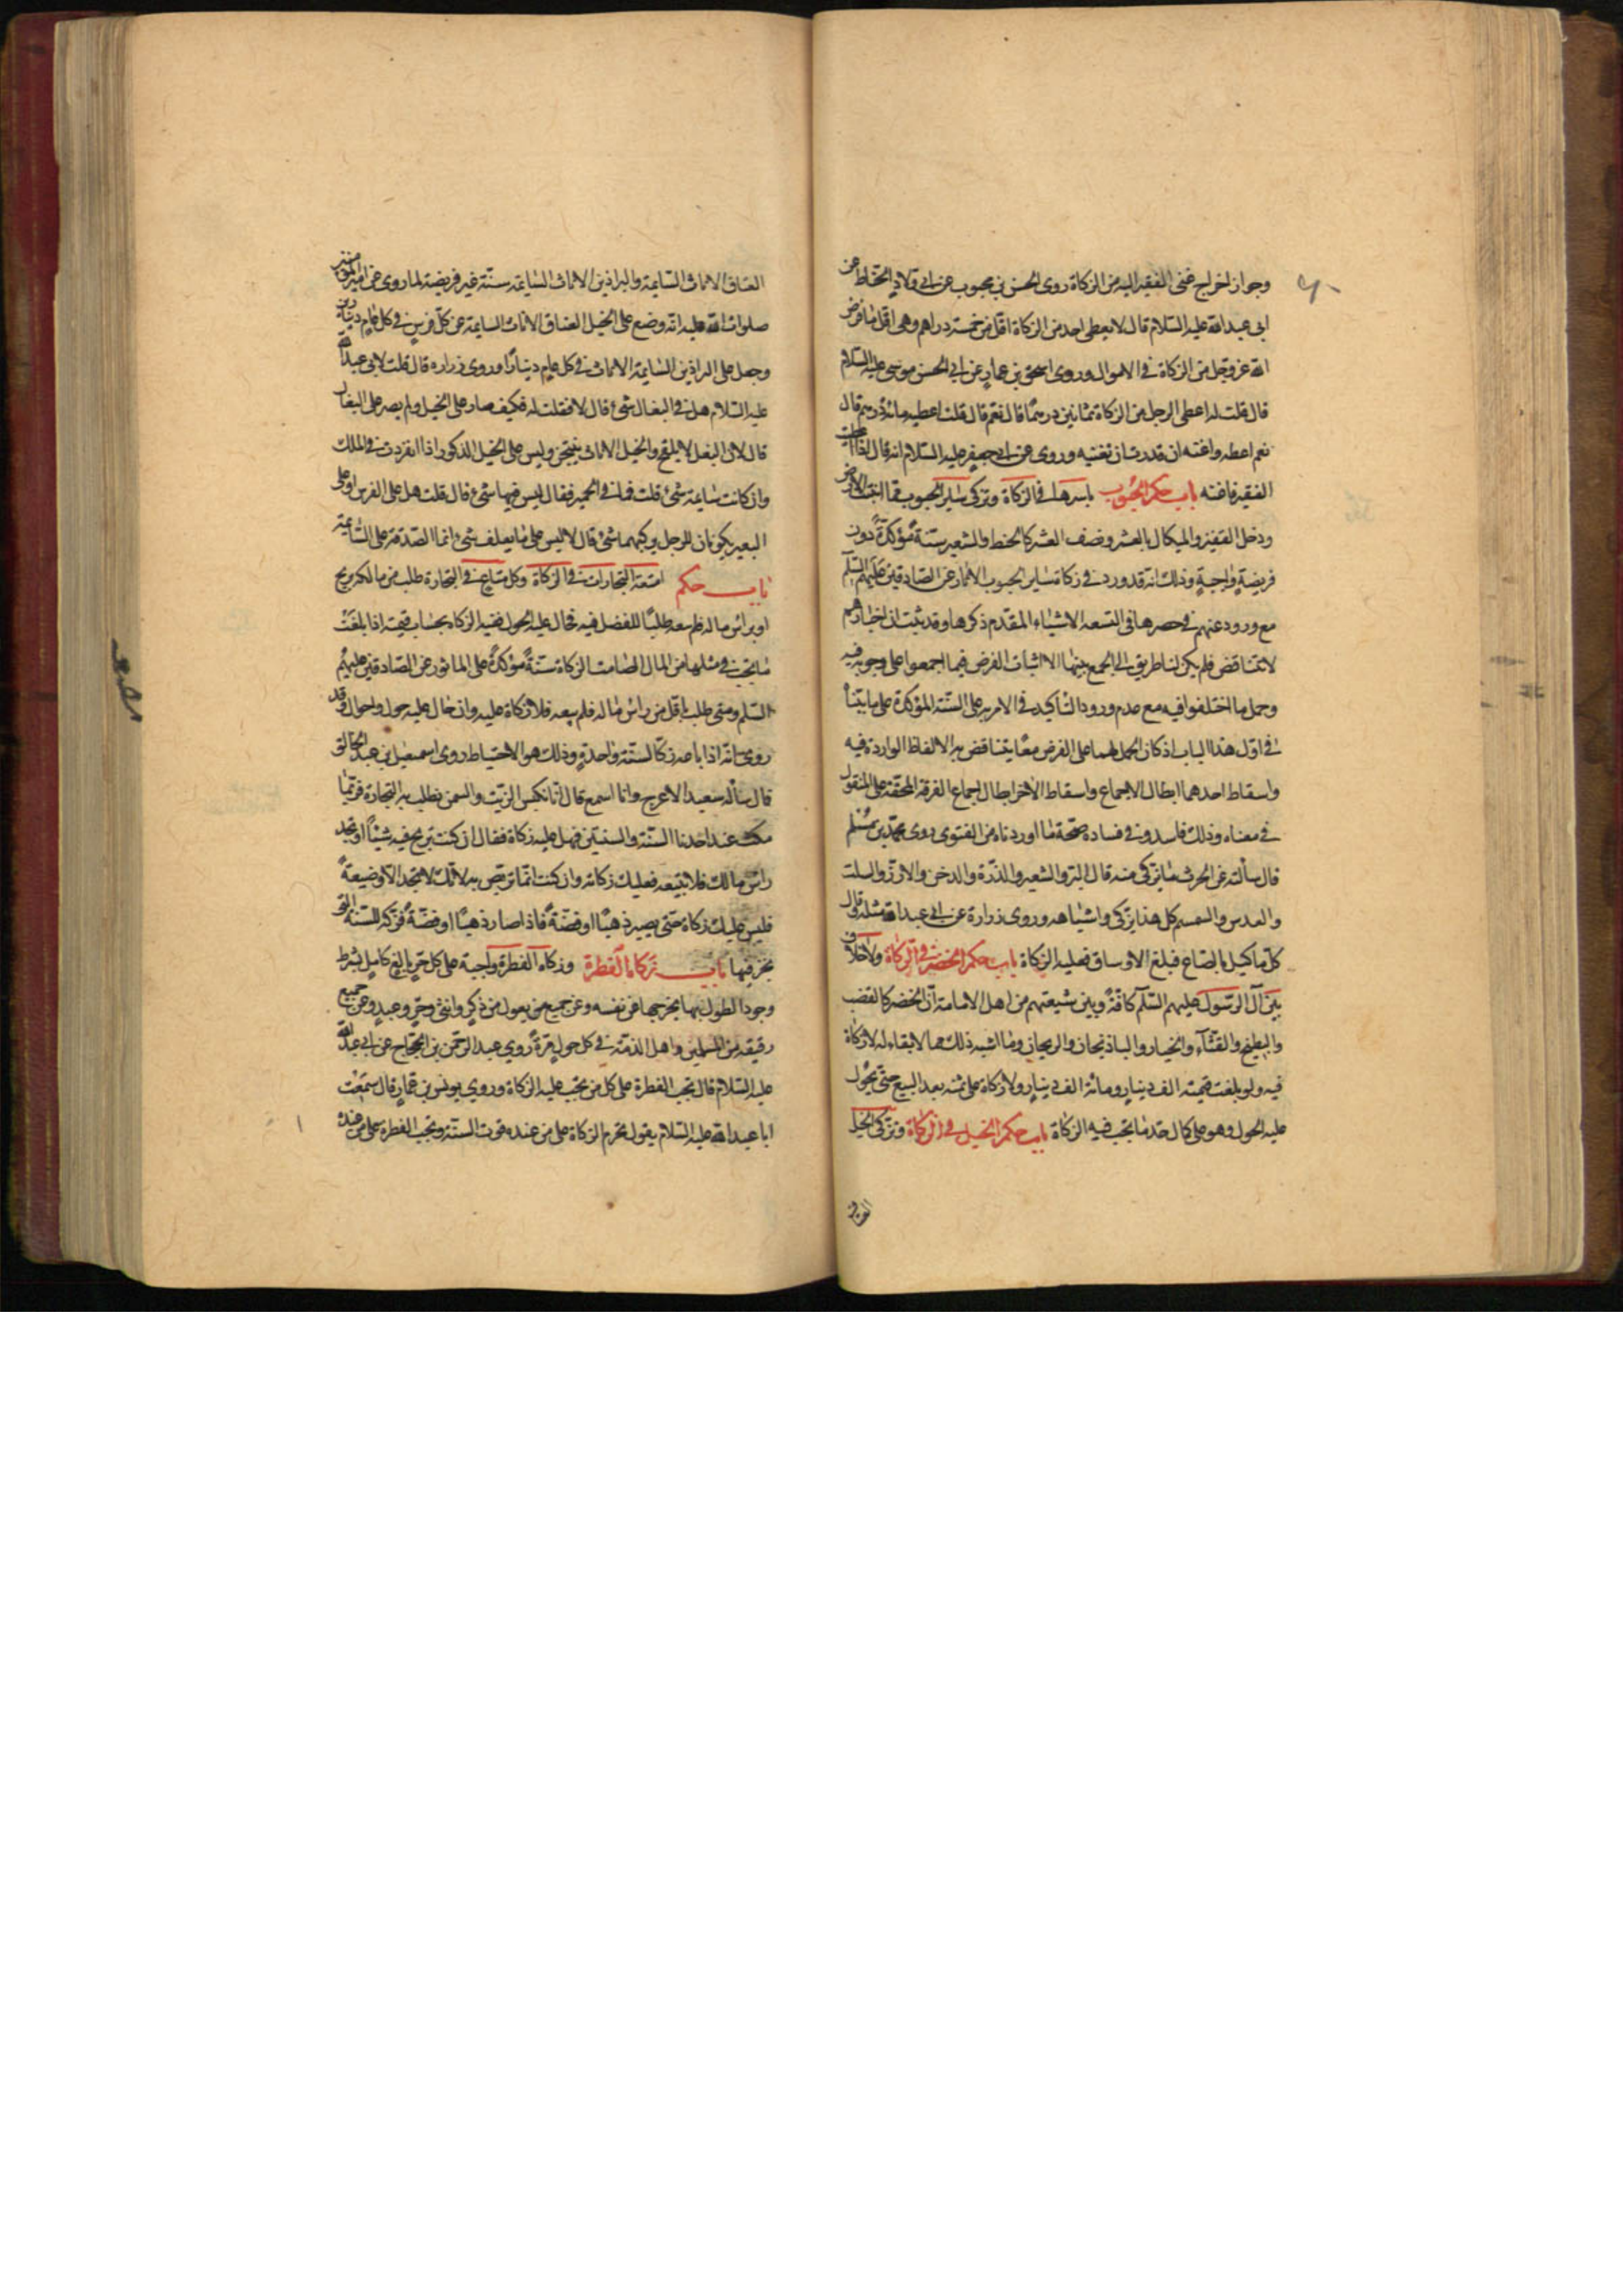 وجواز اخراج غنى الفقير اليه من الزكاة روى الحسن بن محبوب عن ابى ولاد الحناط عن
ابى عبد الله عليه السلام قال لا يعطى احد من الزكاة اقل من خمسة دراهم وهى اقل ما فرض
الله عز وجل من الزكاة فى الاموال وروى اسحق بن عمار عن ابى الحسن موسى عليه السلام
قال قلت له اعطى الرجل من الزكاة ثمانين درهما قال نعم قلت اعطيه مائة درهم قال
نعم اعطه واغنه ان قدرت ان تغنيه وروى عن ابى جعفر عليه السلام انه قال اذا اعطيت
الفقير فاغنه باب حكم الحبوب باسرها فى الزكاة وتزكى سائر الحبوب مما انبتت الارض
ودخل القفيز والميكال بالعشر ونصف العشر كالحنطه والشعير سنة مؤكدة دون
فريضة واجبة وذلك انه قد ورد فى زكاة سائر الحبوب الاثار عن الصادقين عليهم السلم
مع ورود عنهم فى حصرها فى التسعه الاشياء المقدم ذكرها وقد ثبت ان اخبارهم
لا تتناقض فلم يكن لنا طريق الى الجمع بينها الا اثبات الفرض فيما اجمعوا على وجوبه فيه
وحمل ما اختلفوا فيه مع عدم ورود التأكيد فى الامر به على السنة المؤكدة على ما بينا
فى اول هذا الباب اذ كان الحمل لهما على الفرض معا يتناقض به الالفاظ الواردة فيه
واسقاط احدهما ابطال الاجماع واسقاط الاخر ابطال اجماع الفرقة المحقة على المنقول
فى معناه وذلك فاسد وفى فساده صحة ما اوردناه من الفتوى روى محمد بن مسلم
قال سألته عن الحرث ما يزكى منه قال البر والشعير والذرة والدخن والارز والسلت
والعدس والسمسم كل هذا يزكى واشباهه وروى زرارة عن ابى عبد الله مثله وقال
كل ما كيل بالصاع فبلغ الاوساق فعليه الزكاة باب حكم الخضر فى الزكاة ولا خلاف
بين آل الرسول عليهم السلم كافة وبين شيعتهم من اهل الامامة ان الخضر كالقضب
والبطيخ والقثاء والخيار والباذنجان والريحان وما اشبه ذلك مما لا بقاء له لا زكاة
فيه ولو بلغت قيمته الف دينار ومائة الف دينار ولا زكاة على ثمنه بعد البيع حتى يحول
عليه الحول وهو على كمال حد ما يجب فيه الزكاة باب حكم الخيل فى الزكاة وتزكى الخيل
العتاق
العتاق الاناث السايمة والبراذين الاناث السايمة سنة غير فريضة لما روى عن امير المؤمنين
صلوات الله عليه انه وضع على الخيل العتاق الاناث السايمة عن كل فرس فى كل عام دينارين
وجعل على البراذين السايمة الاناث فى كل عام دينارا وروى زراره قال قلت لابى عبد الله
عليه السلام هل فى البغال شئ قال لا فقلت له فكيف صار على الخيل ولم يصر على البغال
قال لان البغل لا يلقح والخيل الاناث ينتجن وليس على الخيل الذكور اذا انفردت فى الملك
وان كانت سايمة شئ قلت فما فى الحمير فقال ليس فيها شئ قال قلت هل على الفرس او على
البعير يكونان للرجل يركبهما شئ قال لا ليس على ما يعلف شئ انما الصدقة على السايمة
باب حكم امتعة التجارات فى الزكاة وكل متاع فى التجارة طلب من مالكه بربح
او براس ماله فلم يبعه طلبا للفضل فيه فحال عليه الحول ففيه الزكاه بحساب قيمته اذا بلغت
ما يجب فى مثلها من المال الصامت الزكاة سنة مؤكدة على الماثور عن الصادقين عليهم
السلم ومتى طلب باقل من راس ماله فلم يبعه فلا زكاة عليه وان حال عليه حول واحوال وقد
روى انه اذا باعه زكاه لسنة واحدة وذلك هو الاحتياط روى اسمعيل بن عبد الخالق
قال سأله سعيد الاعرج وانا اسمع قال انا نكبس الزيت والسمن نطلب به التجارة فربما
مكث عند احدنا السنة والسنتين فهل عليه زكاة فقال ان كنت تربح فيه شيئا او تجد
راس مالك فلا تبيعه فعليك زكاته وان كنت انما تربص به لانك لا تجد الا وضيعة
فليس عليك زكاة حتى يصير ذهبا او فضة فاذا صار ذهبا او فضة فزكه للسنة التى
تخرج فيها باب زكاة الفطرة وزكاة الفطرة واجبة على كل حر بالغ كامل بشرط
وجود الطول بها يخرجها عن نفسه وعن جميع من يعول من ذكر وانثى وحر وعبد وعن جميع
رقيقه من المسلمين واهل الذمة فى كل حول مرة روى عبد الرحمن بن الحجاج عن ابى عبد الله
عليه السلام قال تجب الفطرة على كل من تجب عليه الزكاة وروى يونس بن عمار قال سمعت
ابا عبد الله عليه السلام يقول تحرم الزكاة على من عنده قوت السنة وتجب الفطرة على من عنده